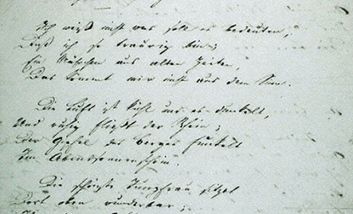 Ich weiß nicht was soll es bedeuten,
Daß ich so traurig bin;
Ein Mährchen aus alten Zeiten,
Das kommt mir nicht aus dem Sinn.
Die Luft ist kühl und es dunkelt,
Und ruhig fließt der Rhein;
Der Gipfel des Berges funkelt
Im Abendsonnenschein.
Die schönste Jungfrau sitzet
Dort oben wunderbar;